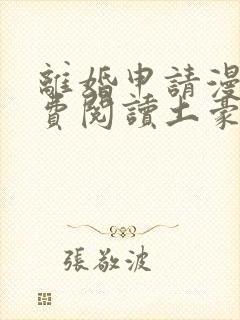 離婚申請漫
費閱讀土豪
張敬波